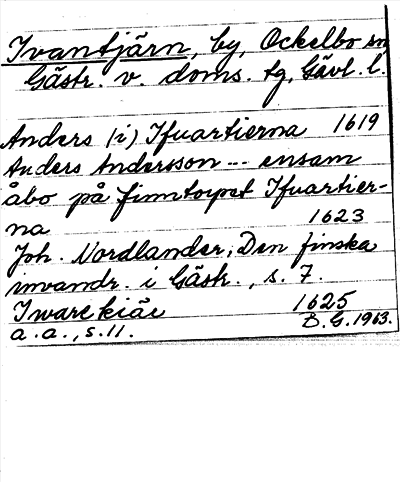 Ivantjärn, by, Ockelbo sn
Gästr. v. doms. tg, Gävl. l.
Anders (i) Ifuartierna 1619
Anders Andersson --- ensam
åbo på finntorpet Ifuartier-
na 1623
Joh. Nordlander, Den finska
invandr. i Gästr., s. 7.
Iwarekiäe 1625
a.a., s. 11. B.G. 1963.